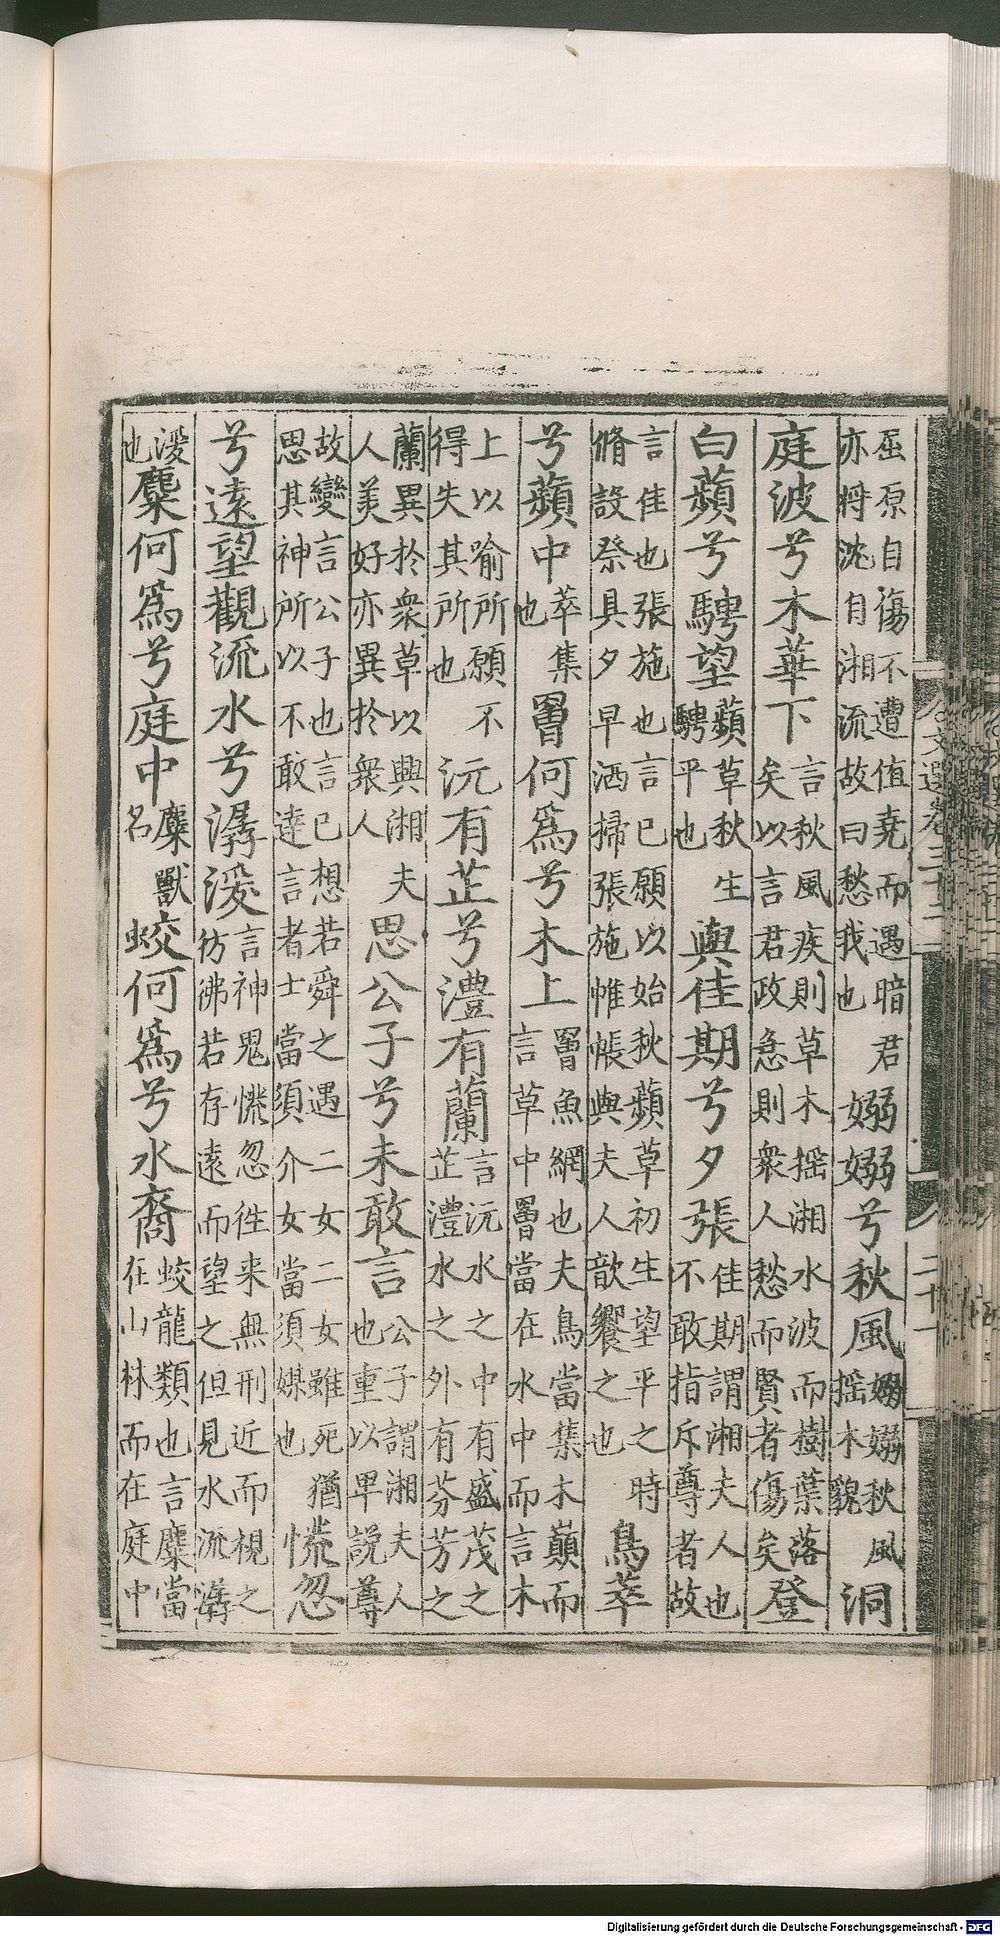 屈原自傷不遭值堯而遇暗君
亦將沈身湘流故曰愁我也
嫋嫋兮秋風
嫋嫋秋風
搖木貌
洞
庭波兮木華下
言秋風疾則草木搖湘水波而樹葉落
矣以言君政急則衆人愁而賢者傷矣
登
白蘋兮騁望
蘋草秋生
騁平也
與佳期兮夕張
佳期謂湘夫人也
不敢指斥尊者故
言佳也張施也言已願以始秋蘋草初生望平之時
脩設祭具夕早洒掃張施帷帳與夫人歆饗之也
鳥萃
兮蘋中
萃集
也
罾何爲兮木上
罾魚網也夫鳥當集木巔而
言草中罾當在水中而言木
上以喻所願不
得失其所也
沅有芷兮澧有蘭
言沅水之中有盛茂之
芷澧水之外有芬芳之
蘭異於衆草以興湘夫
人美好亦異於衆人
思公子兮未敢言
公子謂湘夫人
也重以卑說尊
故變言公子也言已想若舜之遇二女二女雖死猶
思其神所以不敢達言者士當須介女當須媒也
慌忽
兮遠望觀流水兮潺湲
言神鬼慌忽往來無刑近而視之
彷彿若存遠而望之但見水流潺
湲
也
麋何爲兮庭中
麋獸
名
蛟何爲兮水裔
蛟龍類也言麋當
在山林而在庭中
文選卷三十二
二十一
Digitalisierung gefördert durch die Deutsche Forschungsgemeinschaft - DFG